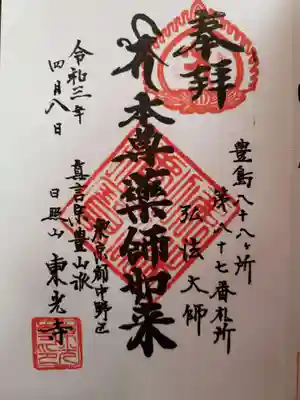 奉拝
豊島八十八ヶ所
第八十七番札所
弘法大師
本尊薬師如来
東京都中野区
真言宗豊山派
日照山東光寺
令和三年
四月八日